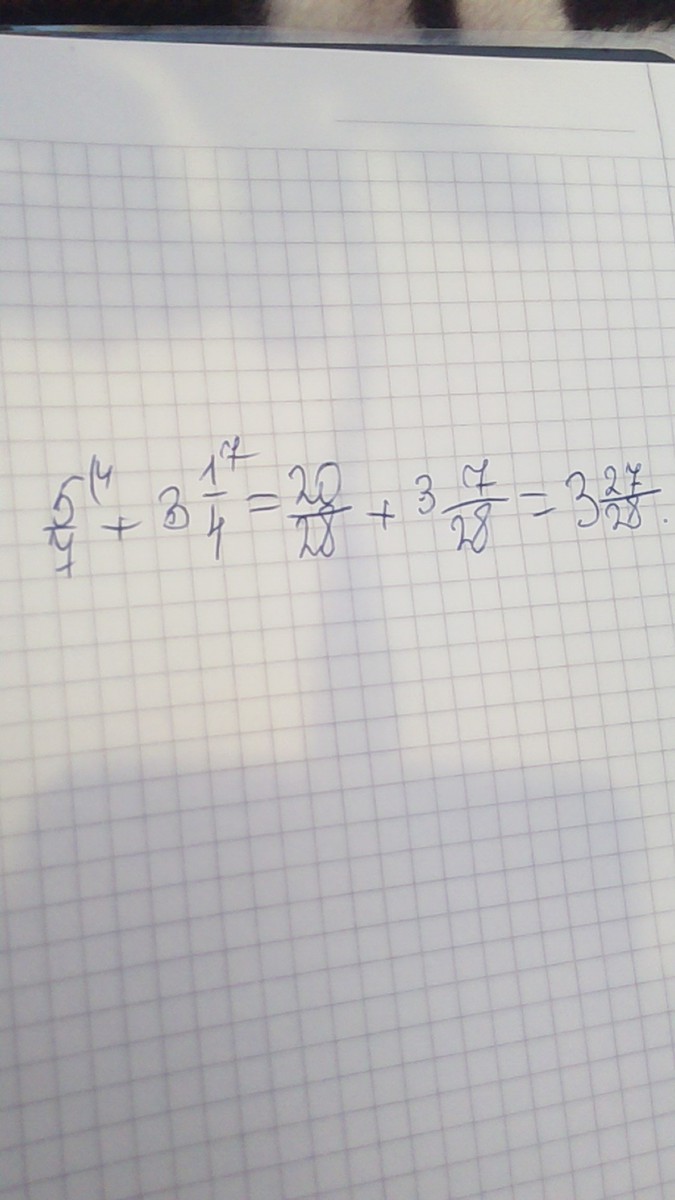 5/7 (4 + 3 1/4 7 = 20/28 + 3 7/28 = 3 27/28.